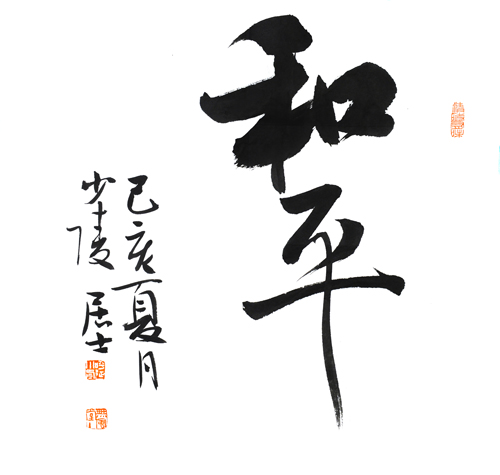 和平
己亥夏月
少陵居士